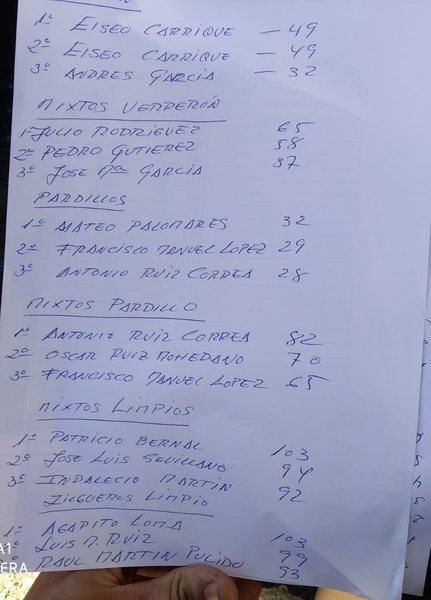 1º ELISEO CARRIQUE - 49
2º ELISEO CARRIQUE - 49
3º ANDRES GARCIA - 32
MIXTOS VERDERÓN
1º JULIO RODRIGUEZ 65
2º PEDRO GUTIEREZ 58
3º JOSE Mª GARCIA 37
PARDILLOS
1º MATEO PALOMARES 32
2º FRANCISCO MANUEL LOPEZ 29
3º ANTONIO RUIZ CORREA 28
MIXTOS PARDILLO
1º ANTONIO RUIZ CORREA 82
2º OSCAR RUIZ MOHEDANO 70
3º FRANCISCO MANUEL LOPEZ 65
MIXTOS LIMPIOS
1º PATRICIO BERNAL 103
2º JOSE LUIS SEVILLANO 94
3º INDALECIO MARTIN 92
JILGUEROS LIMPIO
1º AGAPITO LOMA 103
º LUIS M. RUIZ 99
º RAUL MARTIN PULIDO 93